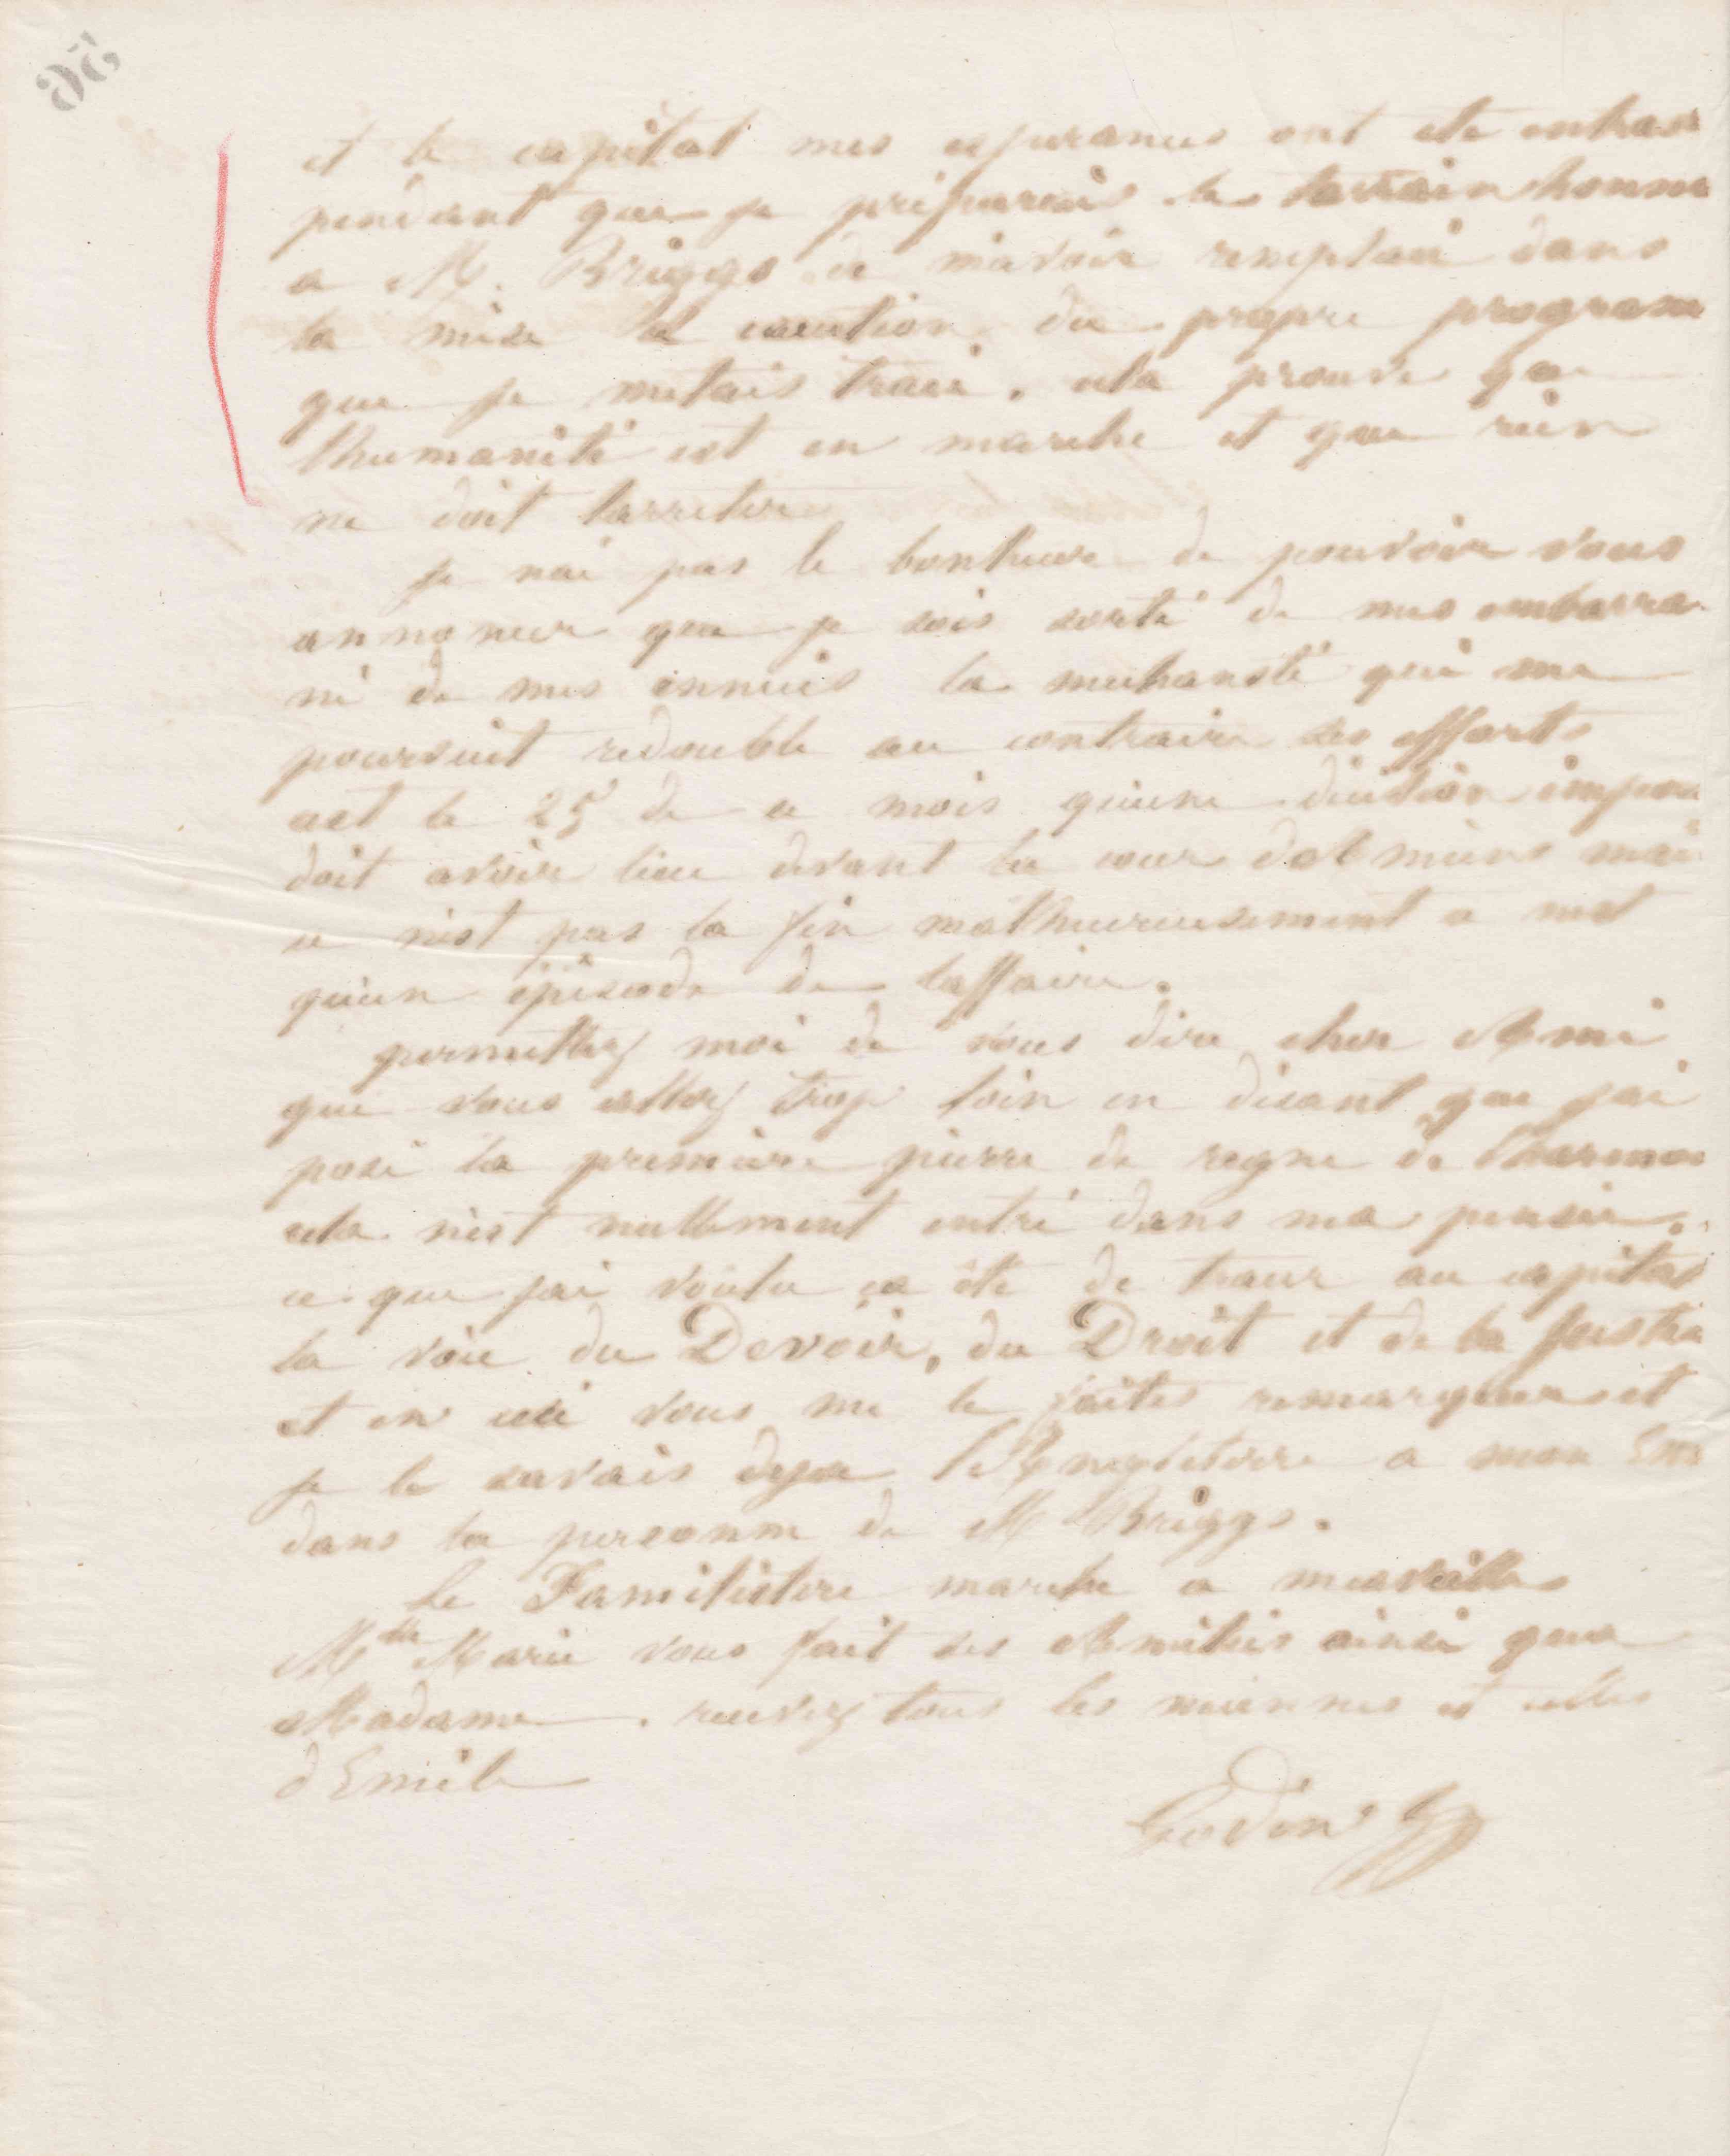 56
et le capital mes esperances ont ete entrav
pendant que je préparais le terrain honneur
a M. Briggs de mavoir remplacé dans
la mise a execution du propre program
que je metais tracé. cela prouve que
lhumanité est en marche et que rien
ne doit larreter
je nai pas le bonheur de pouvoir vous
annoncer que je sois sorti de mes embarra
ni de mes ennuis la mechanceté qui me
poursuit redouble au contraire ses efforts
cest le 25 de ce mois quune décision impor
doit avoir lieu devant la cour dAmiens mai
ce nest pas la fin malheureusement ce nest
quun épisode de laffaire.
permettez moi de vous dire cher Ami
que vous allez trop loin en disant que jai
posé la première pierre du regne de lharmon
cela nest nullement entré dans ma pensée.
ce que jai voulu ca été de tracer au capital
la voie du Devoir, du Droit et de la Justice
et en ceci vous me le faites remarquer et
je le savais deja lAngleterre a mon
dans la personne de M Briggs.
le Familistere marche a merveille
Mlle Marie vous fait ses Amitiés ainsi qua
Madame. recevez tous les miennes et celles
dEmile
Godin